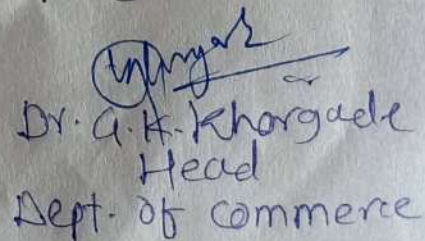 Dr. G.K. Khorgade
Head
Dept. of commerce